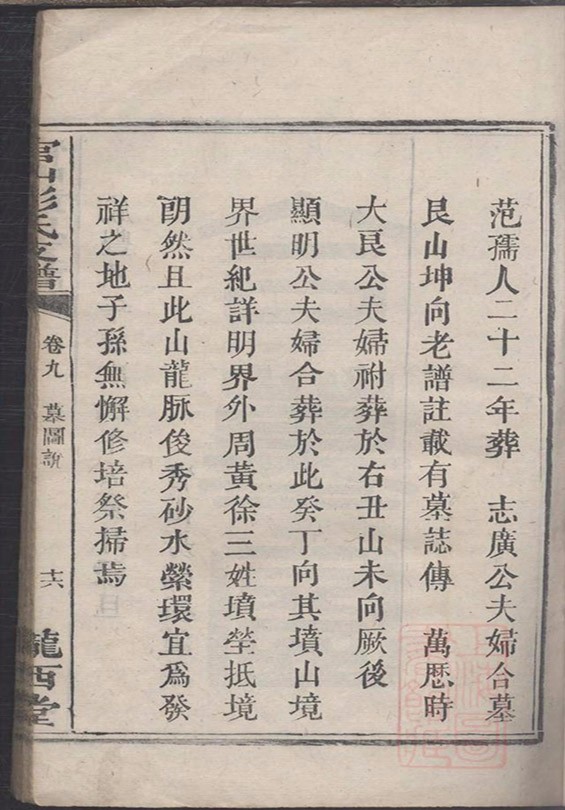 范孺人二十二年葬　志廣公夫婦合墓
艮山坤向老譜註載有墓誌傳　萬懕時
大良公夫婦祔葬於右丑山未向厥後
顯明公夫婦合葬於此癸丁向其墳山境
界世紀詳明界外周黃徐三姓墳塋抵境
朗然且此山龍脉俊秀砂水縈環宜為發
祥之地子孫無懈修培祭掃焉
官山彭氏支譜
卷九　墓圖説
十六
隴西堂